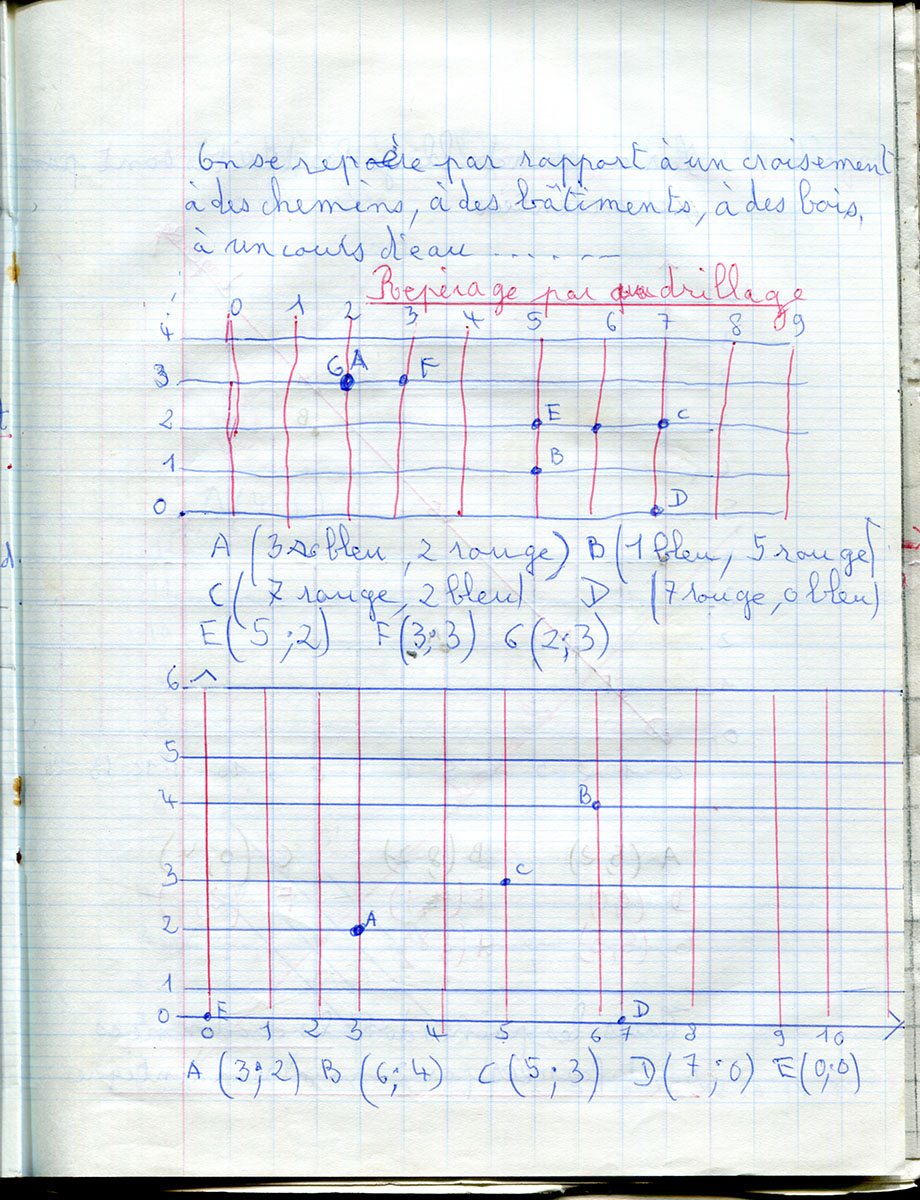 On se repère par rapport à un croisement
à des chemins, à des bâtiments, à des bois,
à un cours d'eau ......
Repérage par quadrillage
0 1 2 3 4 5 6 7 8 9
4
3 G A F
2 E C
1 B
0 D
A (3 bleu, 2 rouge) B (1 bleu, 5 rouge)
C ( 7 rouge, 2 bleu) D (7 rouge, 0 bleu)
E (5 ; 2) F (3 ; 3) G (2 ; 3)
6
5
4 B
3 C
2 A
1
0 E D
0 1 2 3 4 5 6 7 8 9 10
A (3 ; 2) B (6 ; 4) C (5 ; 3) D (7 ; 0) E (0 ; 0)